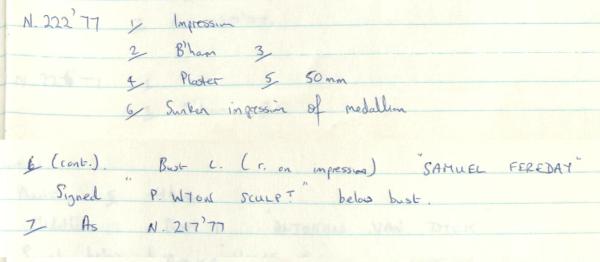 N.222'77 1/ Impression
2/ B'ham 3/
4/ Plaster 5/ 50mm
6/ Sunken impression of medallion
6 (cont.). Bust L. (r. on impression) "SAMUEL FEREDAY"
Signed "P. WYON SCULPT" below bust.
7/ As N.217'77